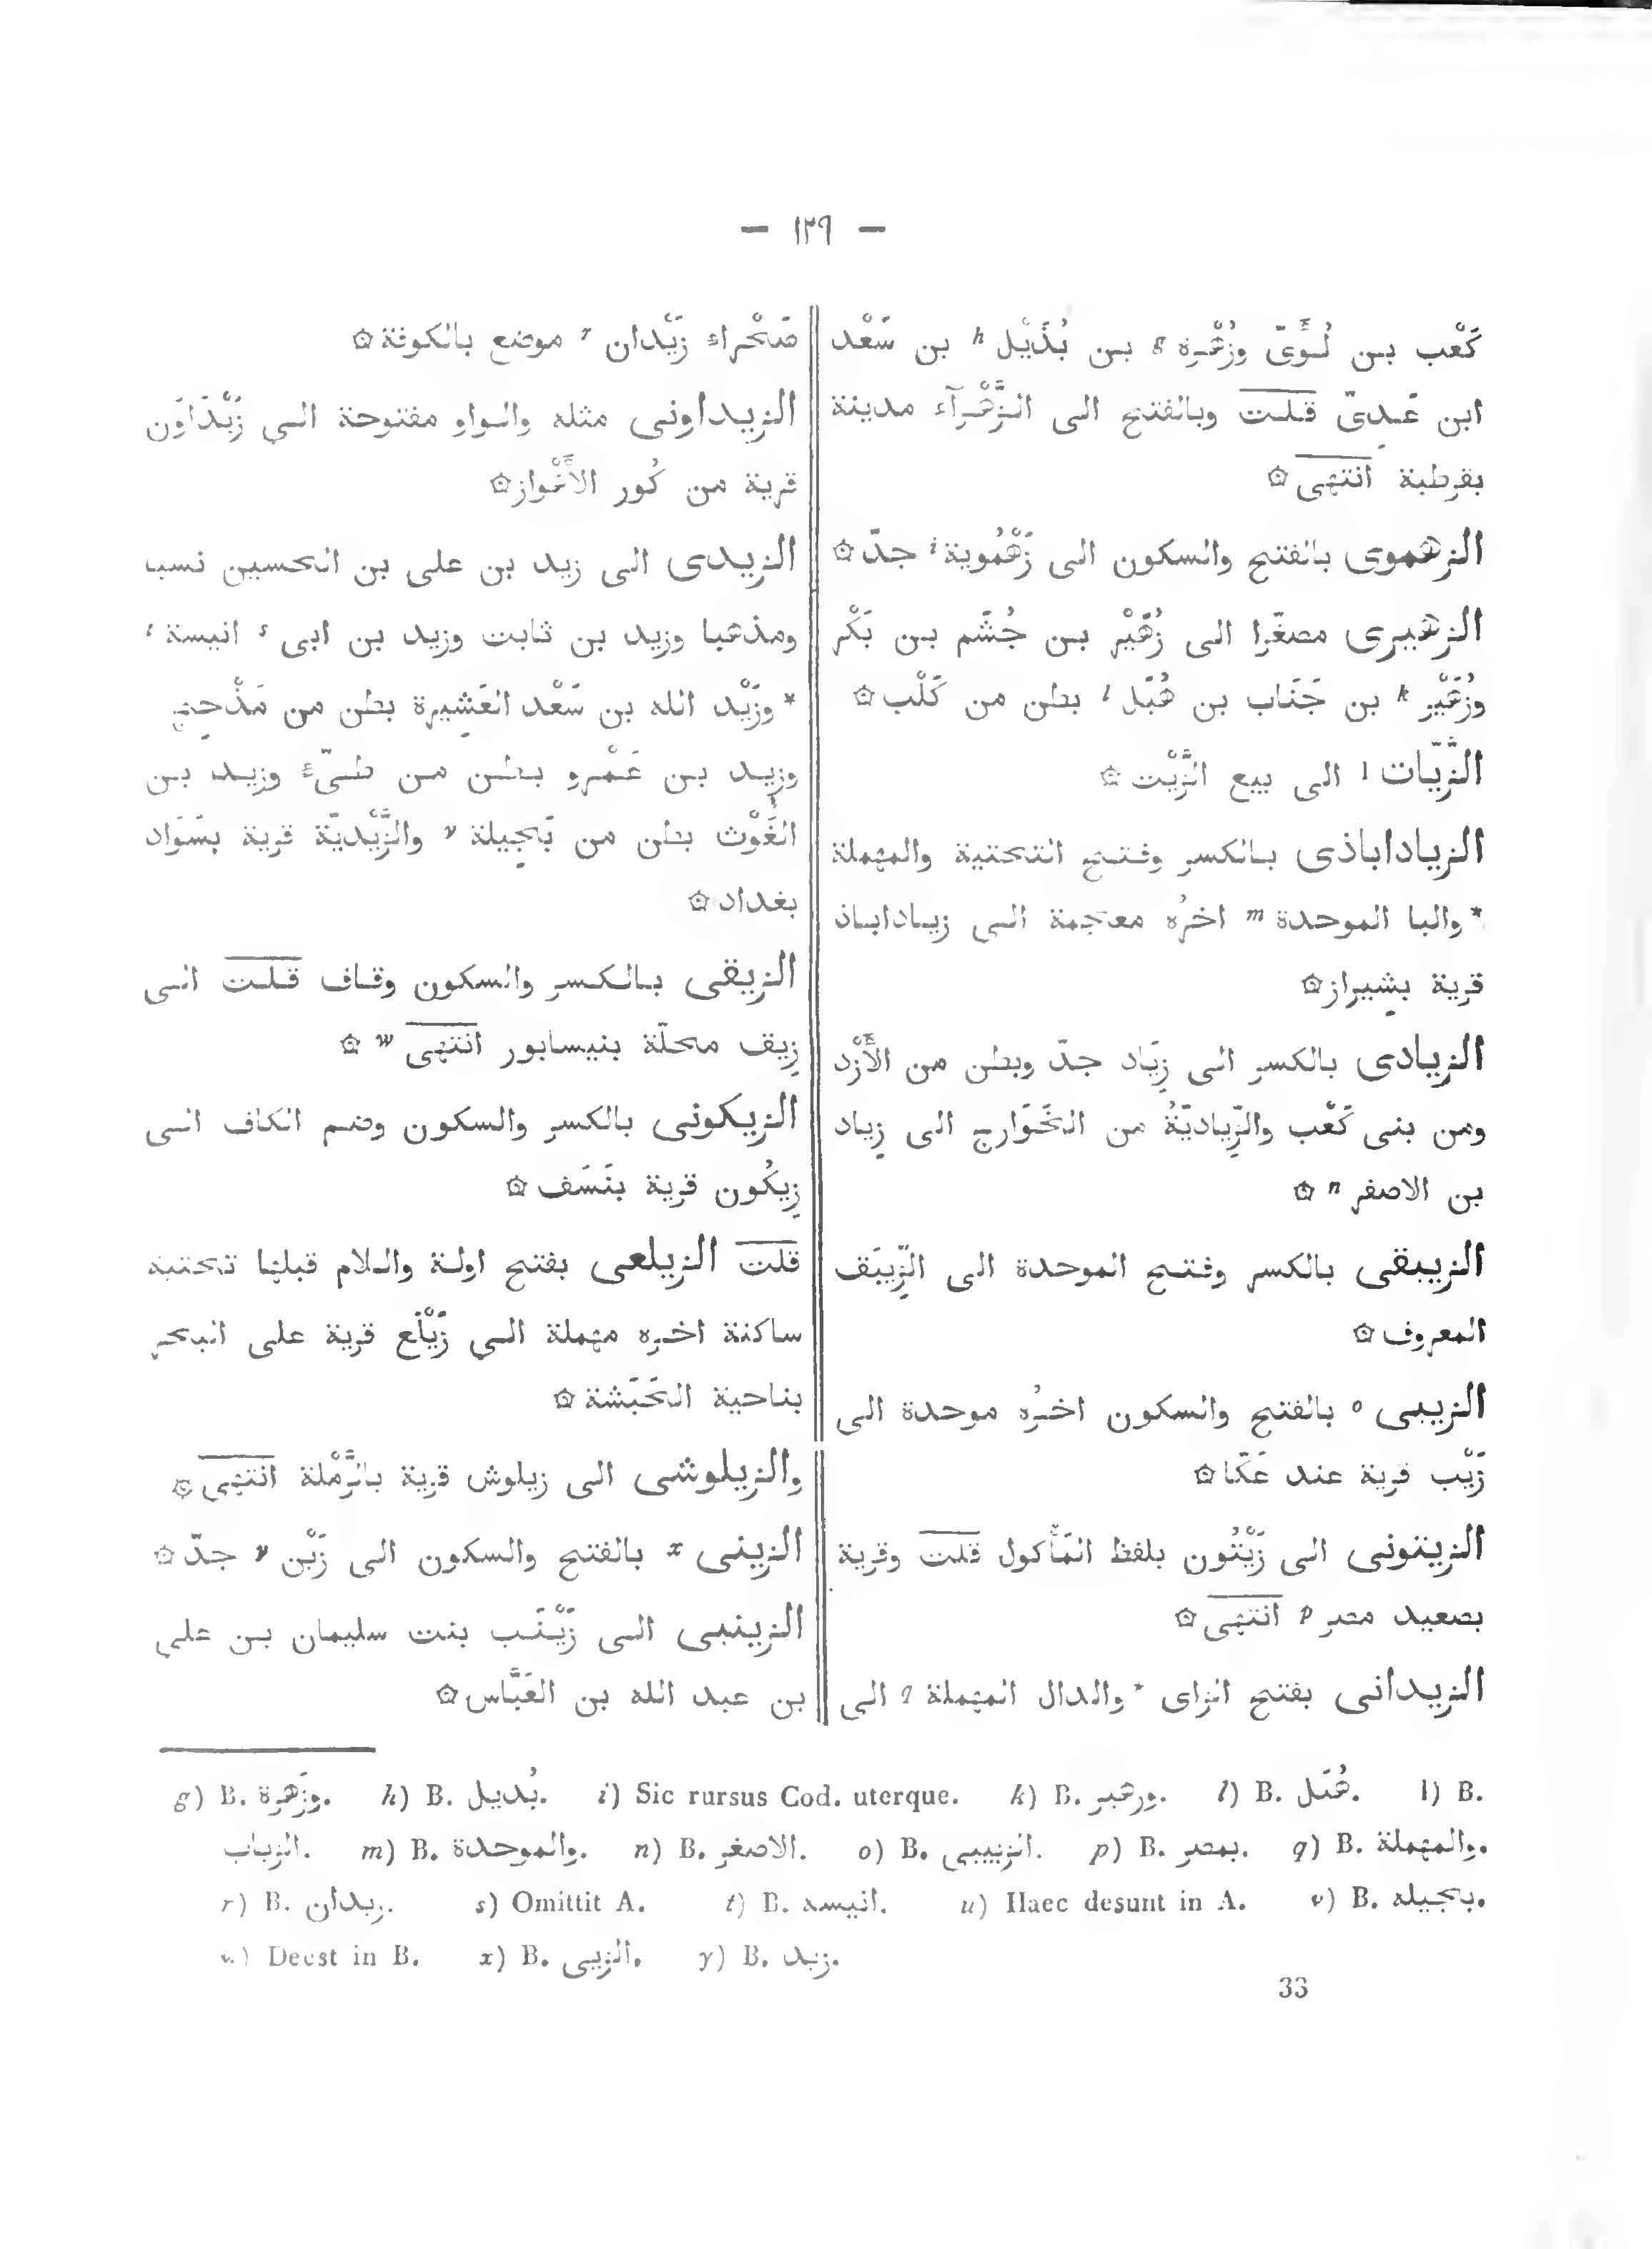 — ١٢٩ —
كَعْب بـن لُـؤَىّ وزُهْـرة g بـن بُذَيْل h بن سَعْد
ابن عَـدِىّ قـلـت وبالفتح الى الـزَّهْـرَآء مدينة
بقرطبة انتهى ۞
الزهموى بالفتح والسكون الى زَهْمُوية i جدّ ۞
الزهيرى مصغّرا الى زُهَيْر بـن جُشَم بـن بَكْر
وزُهَيْر k بن جَنَاب بن هُبَل l بطن من كَلْب ۞
الزَّيّات l الى بيع الزَّيْت ۞
الزياداباذى بـالكسر وفـتـح التحتية والمهملة
* والبا الموحدة m اخرُه معجمة الـى زيـاداباذ
قرية بِشيراز ۞
الزيادى بالكسر الى زِيَاد جدّ وبطن من الأَزْد
ومن بنى كَعْب والزِّياديّةُ من الخَوَارج الى زِياد
بن الاصفر n ۞
الزيبقى بالكسر وفـتـح الموحدة الى الزِّيبَق
المعروف ۞
الزيبى o بالفتح والسكون اخـرُه موحدة الى
زَيْب قرية عند عَكّا ۞
الزيتونى الى زَيْتُون بلفظ المَأْكول قلت وقرية
بصعيد مصر p انتهى ۞
الزيدانى بفتح الزاى * والدال المهملة q الى
صَحْراء زَيْدان r موضع بالكوفة ۞
الزيداونى مثله والـواو مفتوحة الـى زَيْدَاوَن
قرية من كُور الأَهْواز ۞
الزيدى الى زيد بن على بن الحسين نسبا
ومذهبا وزيد بن ثابت وزيد بن ابى s انيسة t
* وزَيْد الله بن سَعْد العَشِيرة بطن من مَذْحِج
وزيـد بـن عَمْرو بـطـن مـن طـىّء وزيـد بـن
الغَوْث u بطن من بَجِيلة v والزَّيْديّة قرية بسَوَاد
بغداد ۞
الزيقى بـالـكـسـر والسكون وقـاف قـلـت الـى
زِيق محلّة بنيسابور انتهى w ۞
الزيكونى بالكسر والسكون وضم الكاف الـى
زِيكُون قرية بنَسَف ۞
قلت الزيلعى بفتح اولـة والـلام قبلها تحتية
ساكنة اخـره مهملة الـى زَيْلَع قرية على البحر
بناحية الحَبَشة ۞
والزيلوشى الى زيلوش قرية بالرَّمْلة انتهى ۞
الزينى x بالفتح والسكون الى زَيْن y جدّ ۞
الزينبى الـى زَيْـنَـب بنت سليمان بـن على
بن عبد الله بن العَبَّاس ۞
g) B. وزَهرة. h) B. بُديل. i) Sic rursus Cod. uterque. k) B. ورهبر. l) B. هُتَل. l) B.
الزباب. m) B. والموحدة. n) B. الاصغر. o) B. الزبيبى. p) B. بمصر. q) B. والمهملة.
r) B. ريدان. s) Omittit A. t) B. انيسه. u) Haec desunt in A. v) B. بجيله.
w) Deest in B. x) B. الزيى. y) B. زيد.
33